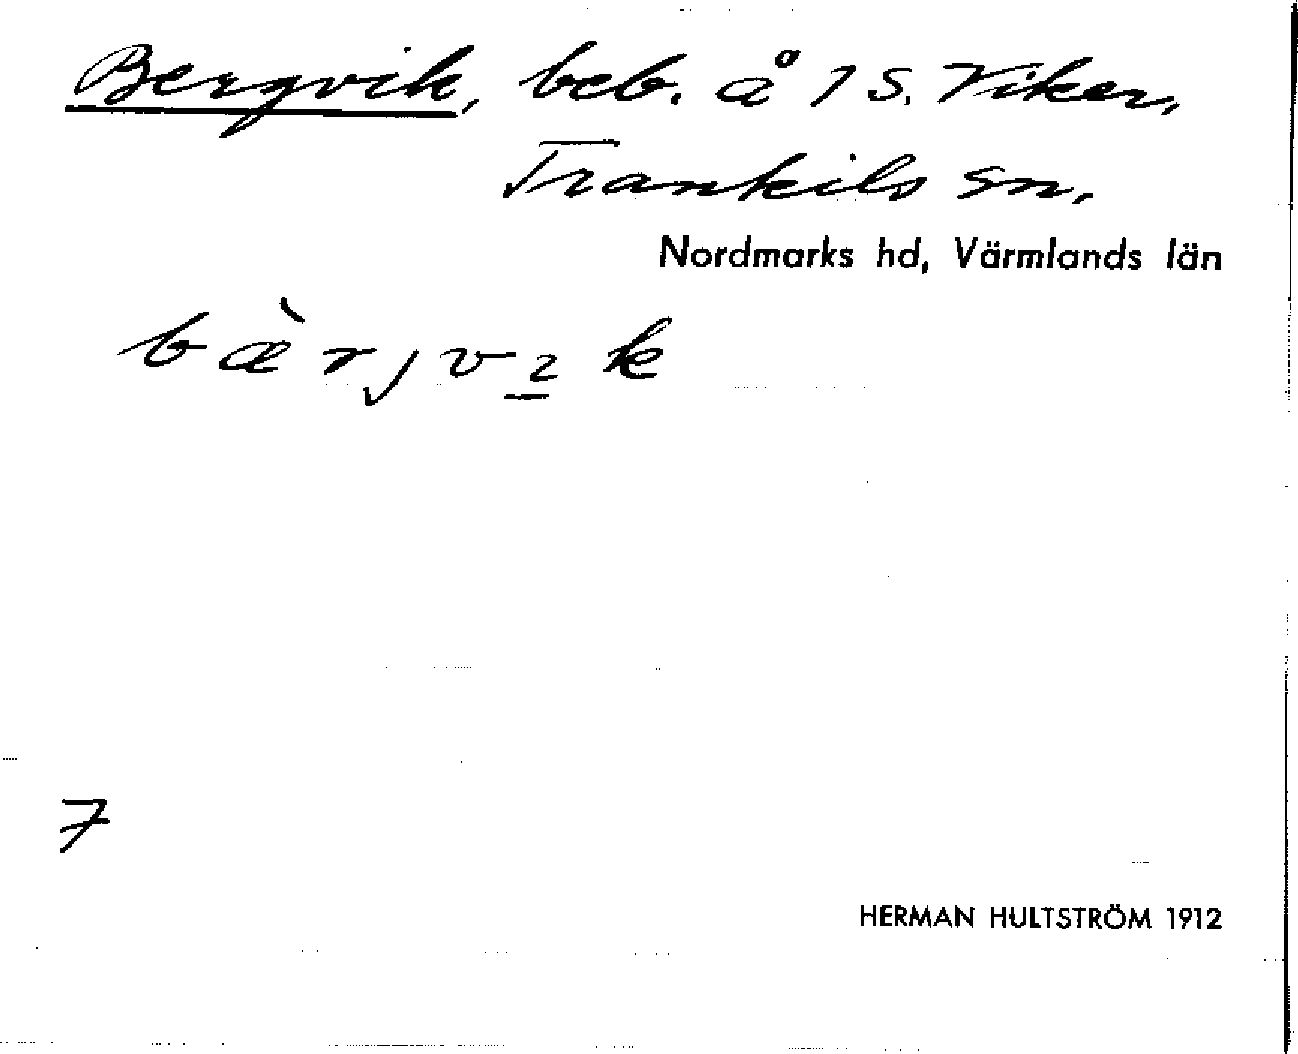 Bergvik, beb. å 1 S. Viker,
Trankils sn.
Nordmarks hd, Värmlands län
bæ̀rjvɪ̱k
7
HERMAN HULTSTRÖM 1912